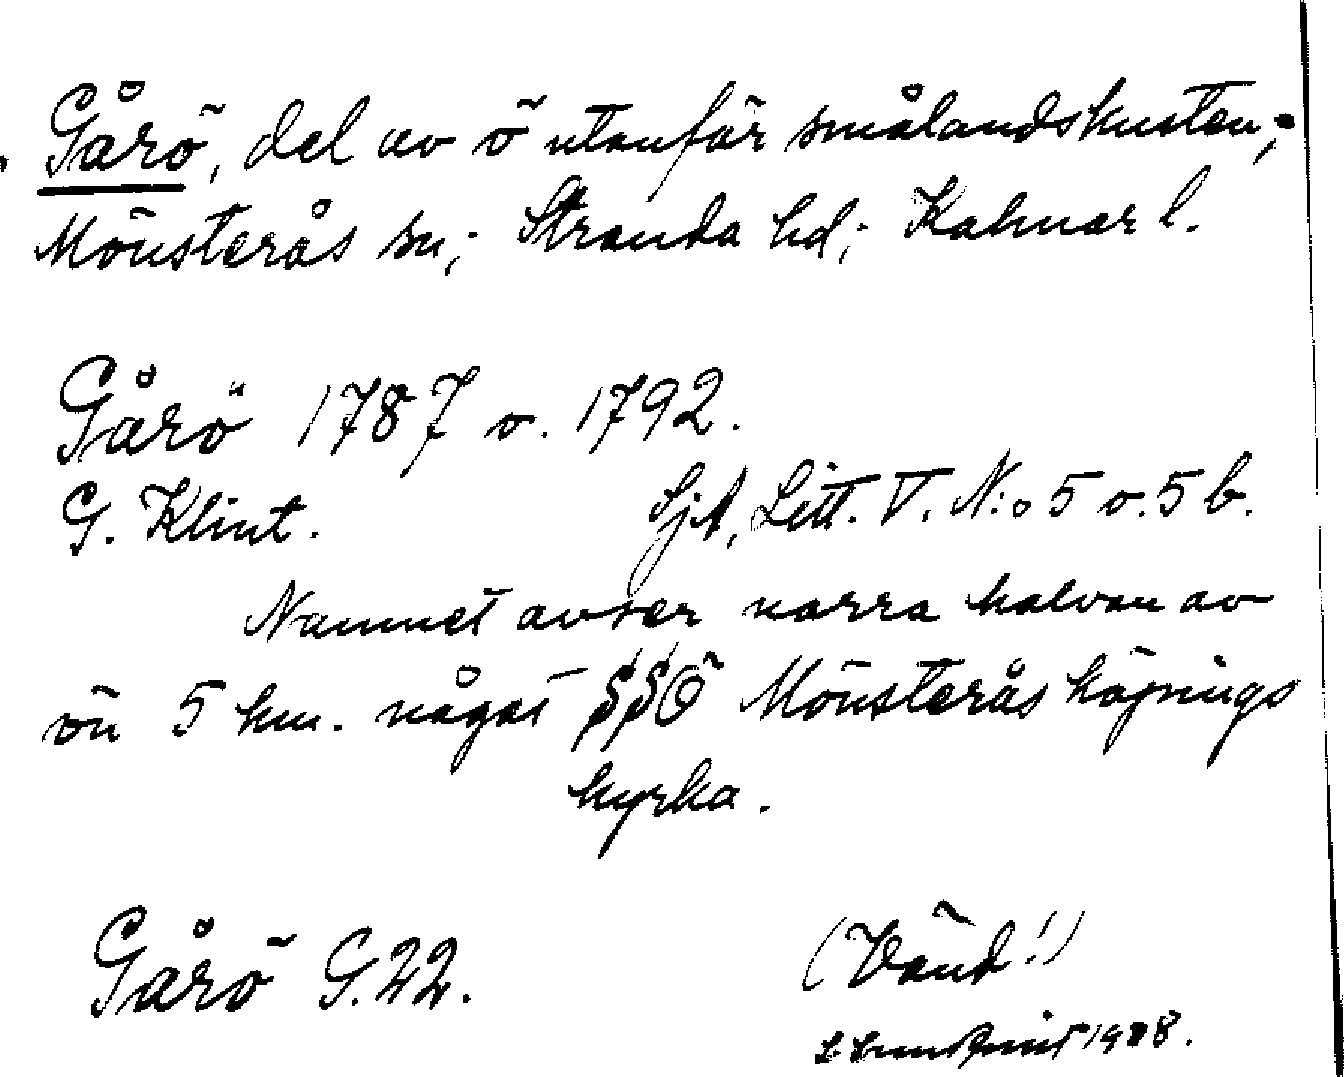 Gårö, del av ö utanför smålandskusten;
Mönsterås sn; Stranda hd; Kalmar l.
Gårö 1787 o. 1792.
G. Klint. SjA, Litt. V. N:o 5 o. 5 b.
Namnet avser norra halvan av
ön 5 km. något SSÖ Mönsterås köpings
kyrka.
Gårö G. 22.
(Vänd!)